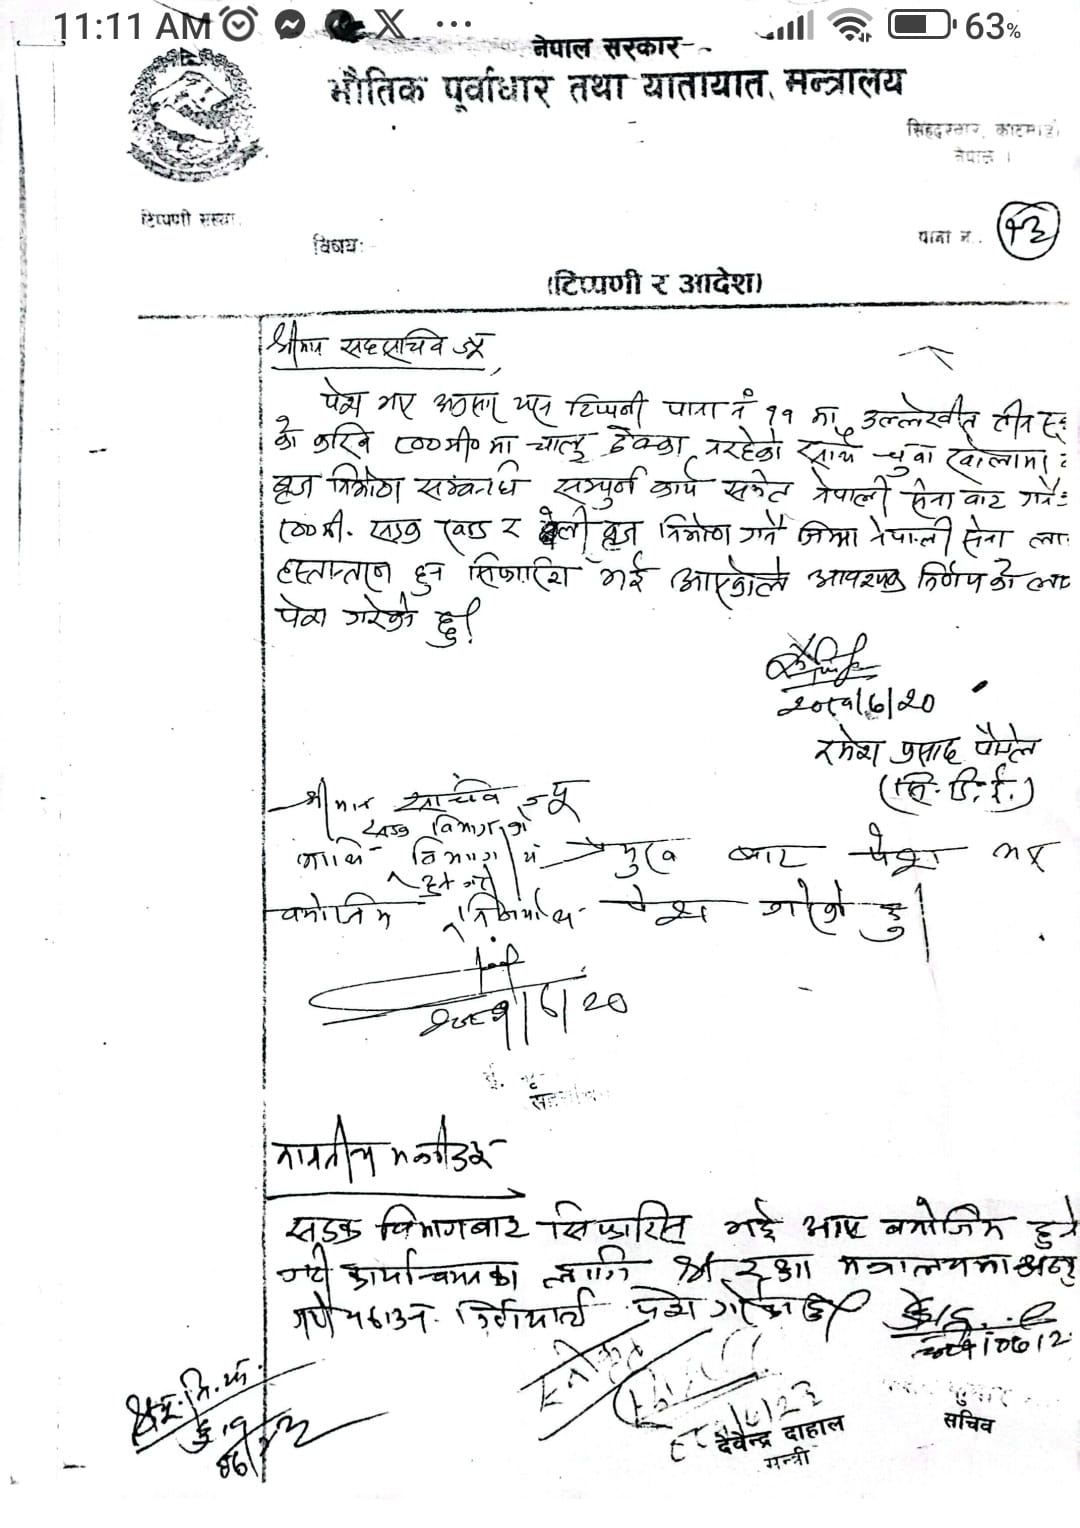 11:11 AM ... 63%
नेपाल सरकार
भौतिक पूर्वाधार तथा यातायात मन्त्रालय
सिंहदरबार, काठमाडौं
नेपाल ।
टिप्पणी संख्या:
विषय:-
पाना नं.. १३
(टिप्पणी र आदेश)
श्रीमान सहसचिव ज्यू,
पेश भए अनुसार टिप्पणी पाना नं ११ मा उल्लेखीत तीन
को करिब ८०० मी० मा चालु ठेक्का नरहेको साथै चुवा खोलामा
वृज निर्माण सम्बन्धि सम्पुर्ण कार्य समेत नेपाली सेना बाट गर्ने
८००मी. सडक खण्ड र बेली वृज निर्माण गर्ने जिम्मा नेपाली सेना
हस्तान्तरण हुन सिफारिश भई आएकोले आवश्यक निर्णयको
पेश गरेको छु।
२०८१/6/20
रमेश प्रसाद पौडेल
(सि. डि. ई.)
श्रीमान सचिव ज्यू
सडक विभागको
माथि विभाग बाट पेश भए
बमोजिम निर्णयार्थ पेश गरेको छु।
२०८१/6/20
माननीय मन्त्रीज्यू
सडक विभागबाट सिफारिस भई आए बमोजिम हुने
गरी कार्यान्वयनका लागि श्री रक्षा मन्त्रालयमा
गर्ने निर्णयार्थ पेश गरेको छु।
देवेन्द्र दाहाल
मन्त्री
सचिव